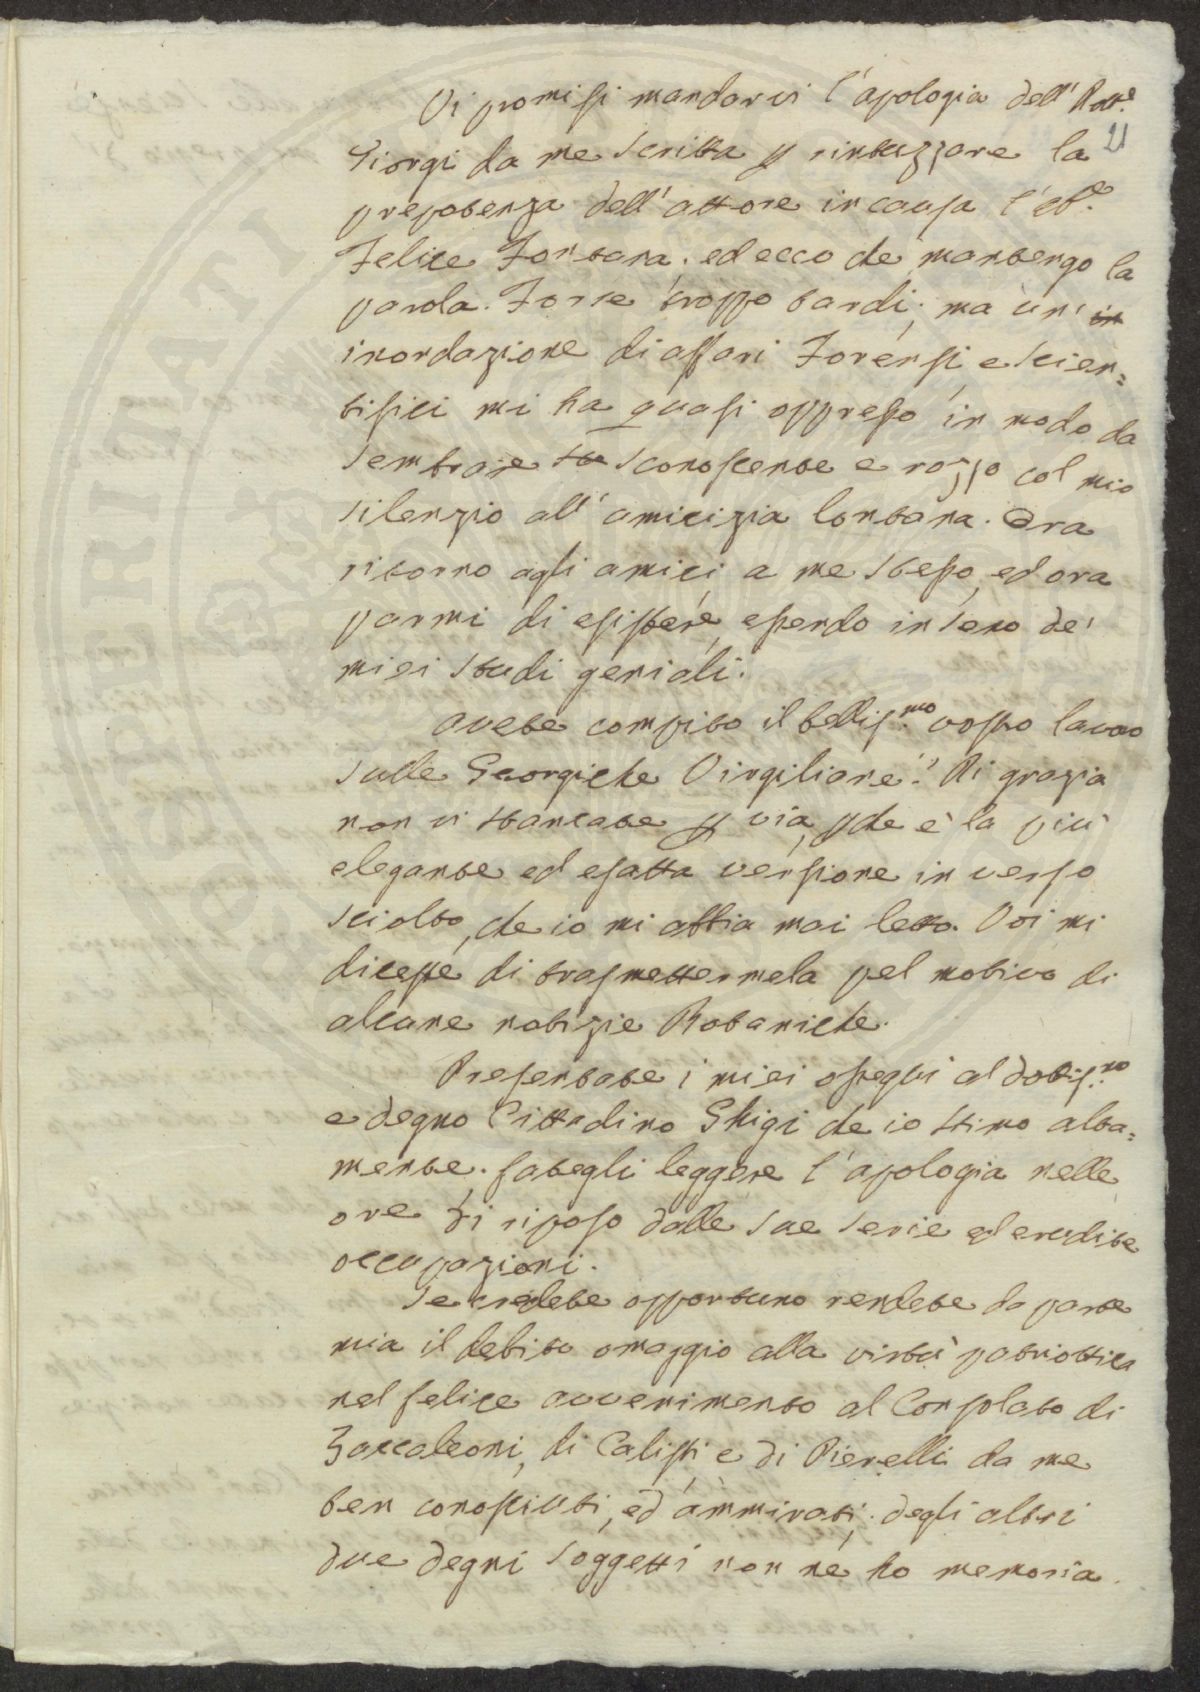 Vi promisi mandarvi l'apologia dell'
21
Giorgi da me scritta p rintuzzare la
prepotenza dell'attore in causa l'
Felice Fontana. ed ecco che mantengo la
parola. Forse troppo tardi; ma un' in
inondazione di affari Forensi e scien=
tifici mi ha quasi oppresso in modo da
sembrare sconoscente e rozzo col mio
silenzio all'amicizia lontana. Ora
ritorno agli amici a me stesso, ed ora
parmi di esistere, essendo in seno de'
miei studi geniali.
Avete compito il bellis.mo vostro lavoro
sulle Georgiche Virgiliane? Di grazia
non vi stancate p via, pche è la più
elegante ed esatta versione in verso
sciolto, che io mi abbia mai letto. Voi mi
diceste di trasmettermela pel motivo di
alcune notizie Botaniche.
Presentate i miei ossequi al dottis.mo
e degno Cittadino Ghigi che io stimo alta=
mente. fategli leggere l'apologia nelle
ore di riposo dalle sue serie ed erudite
occupazioni.
Se credete opportuno rendete da parte
mia il debito omaggio alla virtù patriottica
nel felice avvenimento al Consolato di
Zaccaleoni, di Calisti e di Pierelli da me
ben conosciuti, ed ammirati; degli altri
due degni soggetti non ne ho memoria.